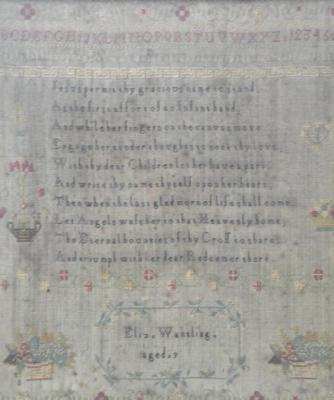 BCDEFGHIJKLMNOPQRSTUVWXYZ. 1234
Jesus permit thy gracious name to stand,
As the first efforts of an Infants hand,
And while her fingers on the canvas move
Engage her tender thoughts to seek thy love,
With thy dear Children let her have a part,
And write thy name thyself upon her heart,
Then when the last glad morn of life shall come
Let Angels waft her to that Heavenly home,
The Eternal bounties of thy Cross to share
And triumph with her dear Redeemer there
Eliz. Wantling.
aged. 9